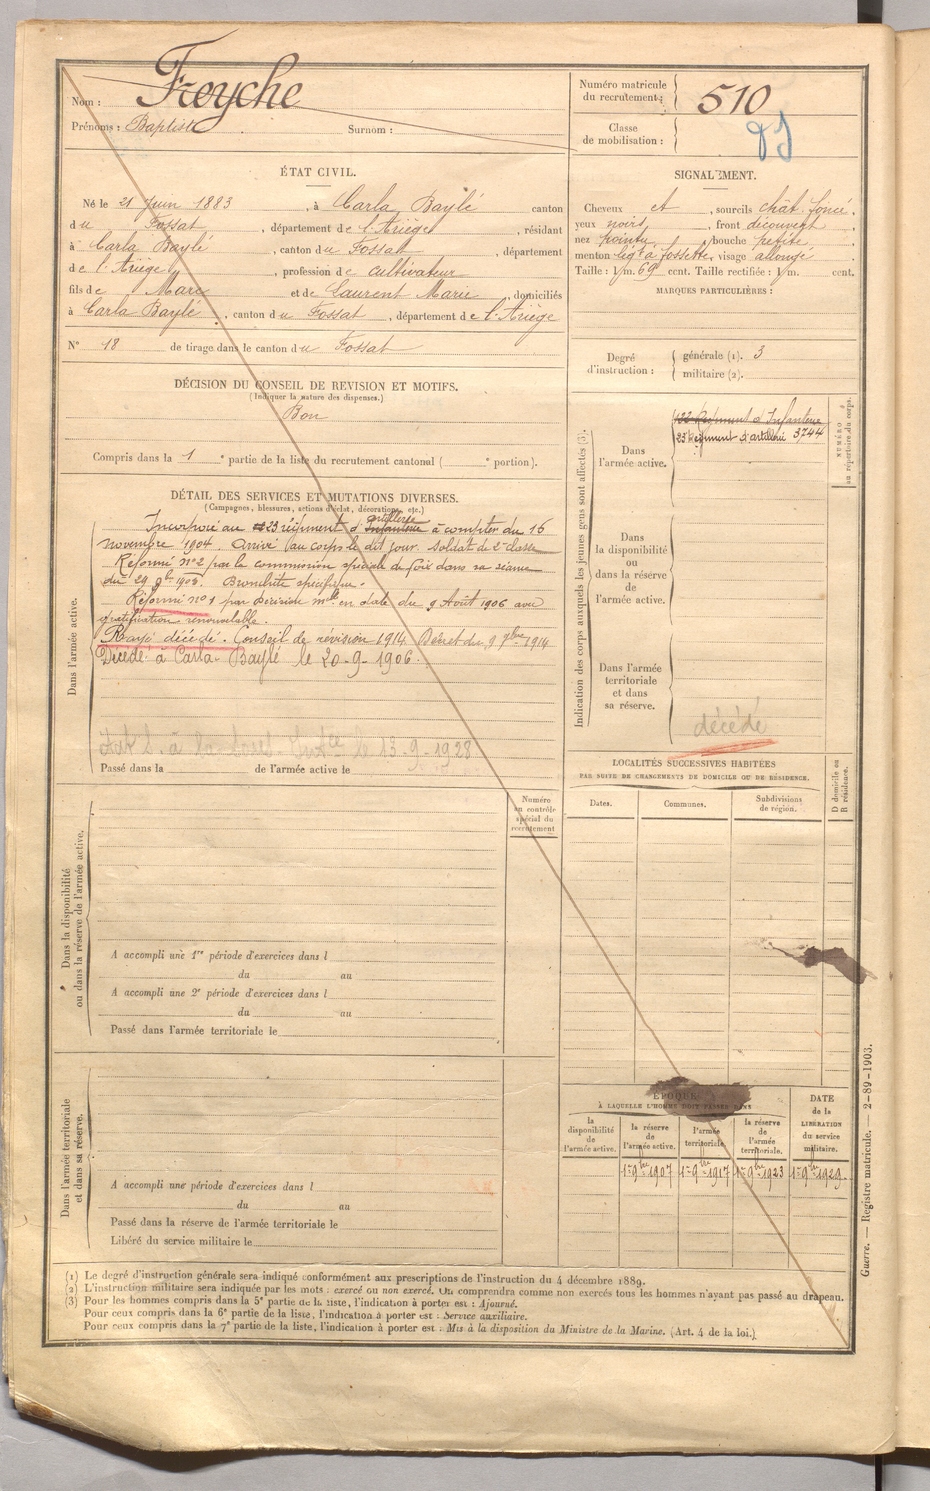 Nom : Freyche
Prénoms : Baptiste Surnom :
Numéro matricule du recrutement : 510
Classe de mobilisation :
ÉTAT CIVIL.
Né le 21 Juin 1883, à Carla Baylé canton
du Fossat, département de l'Ariège, résidant
à Carla Baylé, canton du Fossat, département
de l'Ariège, profession de cultivateur
fils de Marc et de Laurent Marie, domiciliés
à Carla Baylé, canton du Fossat, département de l'Ariège
N° 18 de tirage dans le canton du Fossat
SIGNALEMENT.
Cheveux et, sourcils chât. foncé,
yeux noirs, front découvert,
nez pointu, bouche petite,
menton à fossette, visage allongé
Taille : 1 m. 69 cent. Taille rectifiée : 1 m. cent.
MARQUES PARTICULIÈRES :
Degré d'instruction : générale (1). 3
militaire (2).
DÉCISION DU CONSEIL DE REVISION ET MOTIFS.
(Indiquer la nature des dispenses.)
Bon
Compris dans la 1e partie de la liste du recrutement cantonal ( e portion).
DÉTAIL DES SERVICES ET MUTATIONS DIVERSES.
(Campagnes, blessures, actions d'éclat, décorations, etc.)
Dans l'armée active.
artillerie
Incorporé au 23 régiment d'Infanterie à compter du 16
novembre 1904. Arrivé au corps le dit jour. Soldat de 2e classe
Réformé n°2 par la commission spéciale de Foix dans sa séance
du 29 9bre 1905. Bronchite spécifique.
Réformé n°1 par décision mlle en date du 9 Août 1906 avec
gratification renouvelable.
Rayé décédé. Conseil de révision 1914. Décret du 9 7bre 1914
Décédé à Carla-Baylé le 20-9-1906.
le 13-9-1928
Passé dans la de l'armée active le
Indication des corps auxquels les jeunes gens sont affectés (3).
NUMÉRO au répertoire du corps.
Dans l'armée active.
Régiment d'Infanterie
23 Régiment d'artillerie 3744
Dans la disponibilité ou dans la réserve de l'armée active.
Dans l'armée territoriale et dans sa réserve.
décédé
LOCALITÉS SUCCESSIVES HABITÉES
PAR SUITE DE CHANGEMENTS DE DOMICILE OU DE RÉSIDENCE.
Dates. Communes. Subdivisions de région.
D domicile ou R résidence.
Numéro au contrôle spécial du recrutement
Dans la disponibilité ou dans la réserve de l'armée active.
A accompli une 1re période d'exercices dans l
du au
A accompli une 2e période d'exercices dans l
du au
Passé dans l'armée territoriale le
Dans l'armée territoriale et dans sa réserve.
A accompli une période d'exercices dans l
du au
Passé dans la réserve de l'armée territoriale le
Libéré du service militaire le
ÉPOQUE
À LAQUELLE L'HOMME DOIT PASSER DANS
la disponibilité de l'armée active.
la réserve de l'armée active.
l'armée territoriale.
la réserve de l'armée territoriale.
DATE de la LIBÉRATION du service militaire.
1er 9bre 1907 1er 9bre 1917 1er 9bre 1923 1er 9bre 1929
Guerre. — Registre matricule. — 2-89-1903.
(1) Le degré d'instruction générale sera indiqué conformément aux prescriptions de l'instruction du 4 décembre 1889.
(2) L'instruction militaire sera indiquée par les mots : exercé ou non exercé. On comprendra comme non exercés tous les hommes n'ayant pas passé au drapeau.
(3) Pour les hommes compris dans la 5e partie de la liste, l'indication à porter est : Ajourné.
Pour ceux compris dans la 6e partie de la liste, l'indication à porter est : Service auxiliaire.
Pour ceux compris dans la 7e partie de la liste, l'indication à porter est : Mis à la disposition du Ministre de la Marine. (Art. 4 de la loi.)